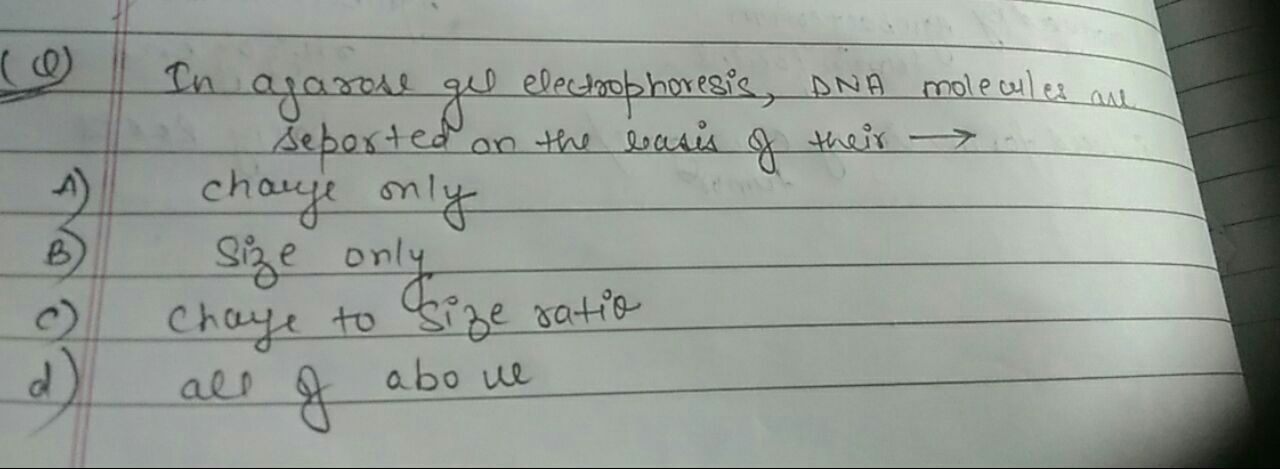 (Q) In agarose gel electrophoresis, DNA molecules are
seported on the basis of their →
A) charge only
B) Size only
c) Charge to Size ratio
d) all of above